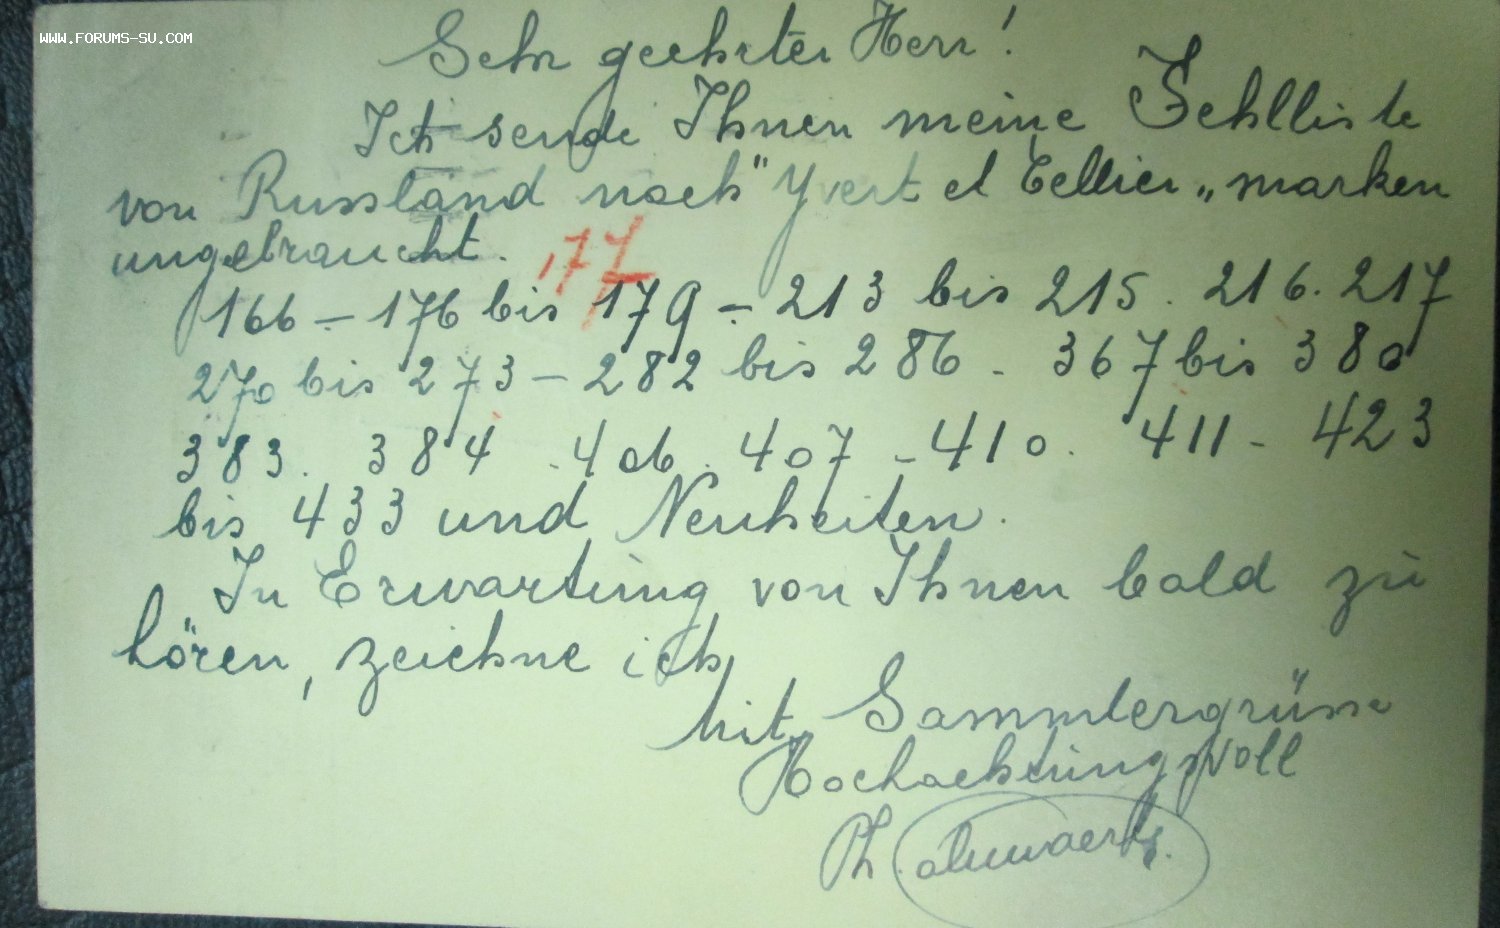 WWW.FORUMS-SU.COM
Sehr geehrter Herr!
Ich sende Ihnen meine Fehlliste
von Russland nach "Yvert et Tellier„ marken
ungebraucht.
177
166 – 176 bis 179 – 213 bis 215. 216. 217
270 bis 273 – 282 bis 286 - 367 bis 380
383. 384 - 406. 407 - 410. 411 - 423
bis 433 und Neuheiten.
In Erwartung von Ihnen bald zu
hören, zeichne ich
Mit Sammlergrüsse
Hochachtungsvoll
Ph.